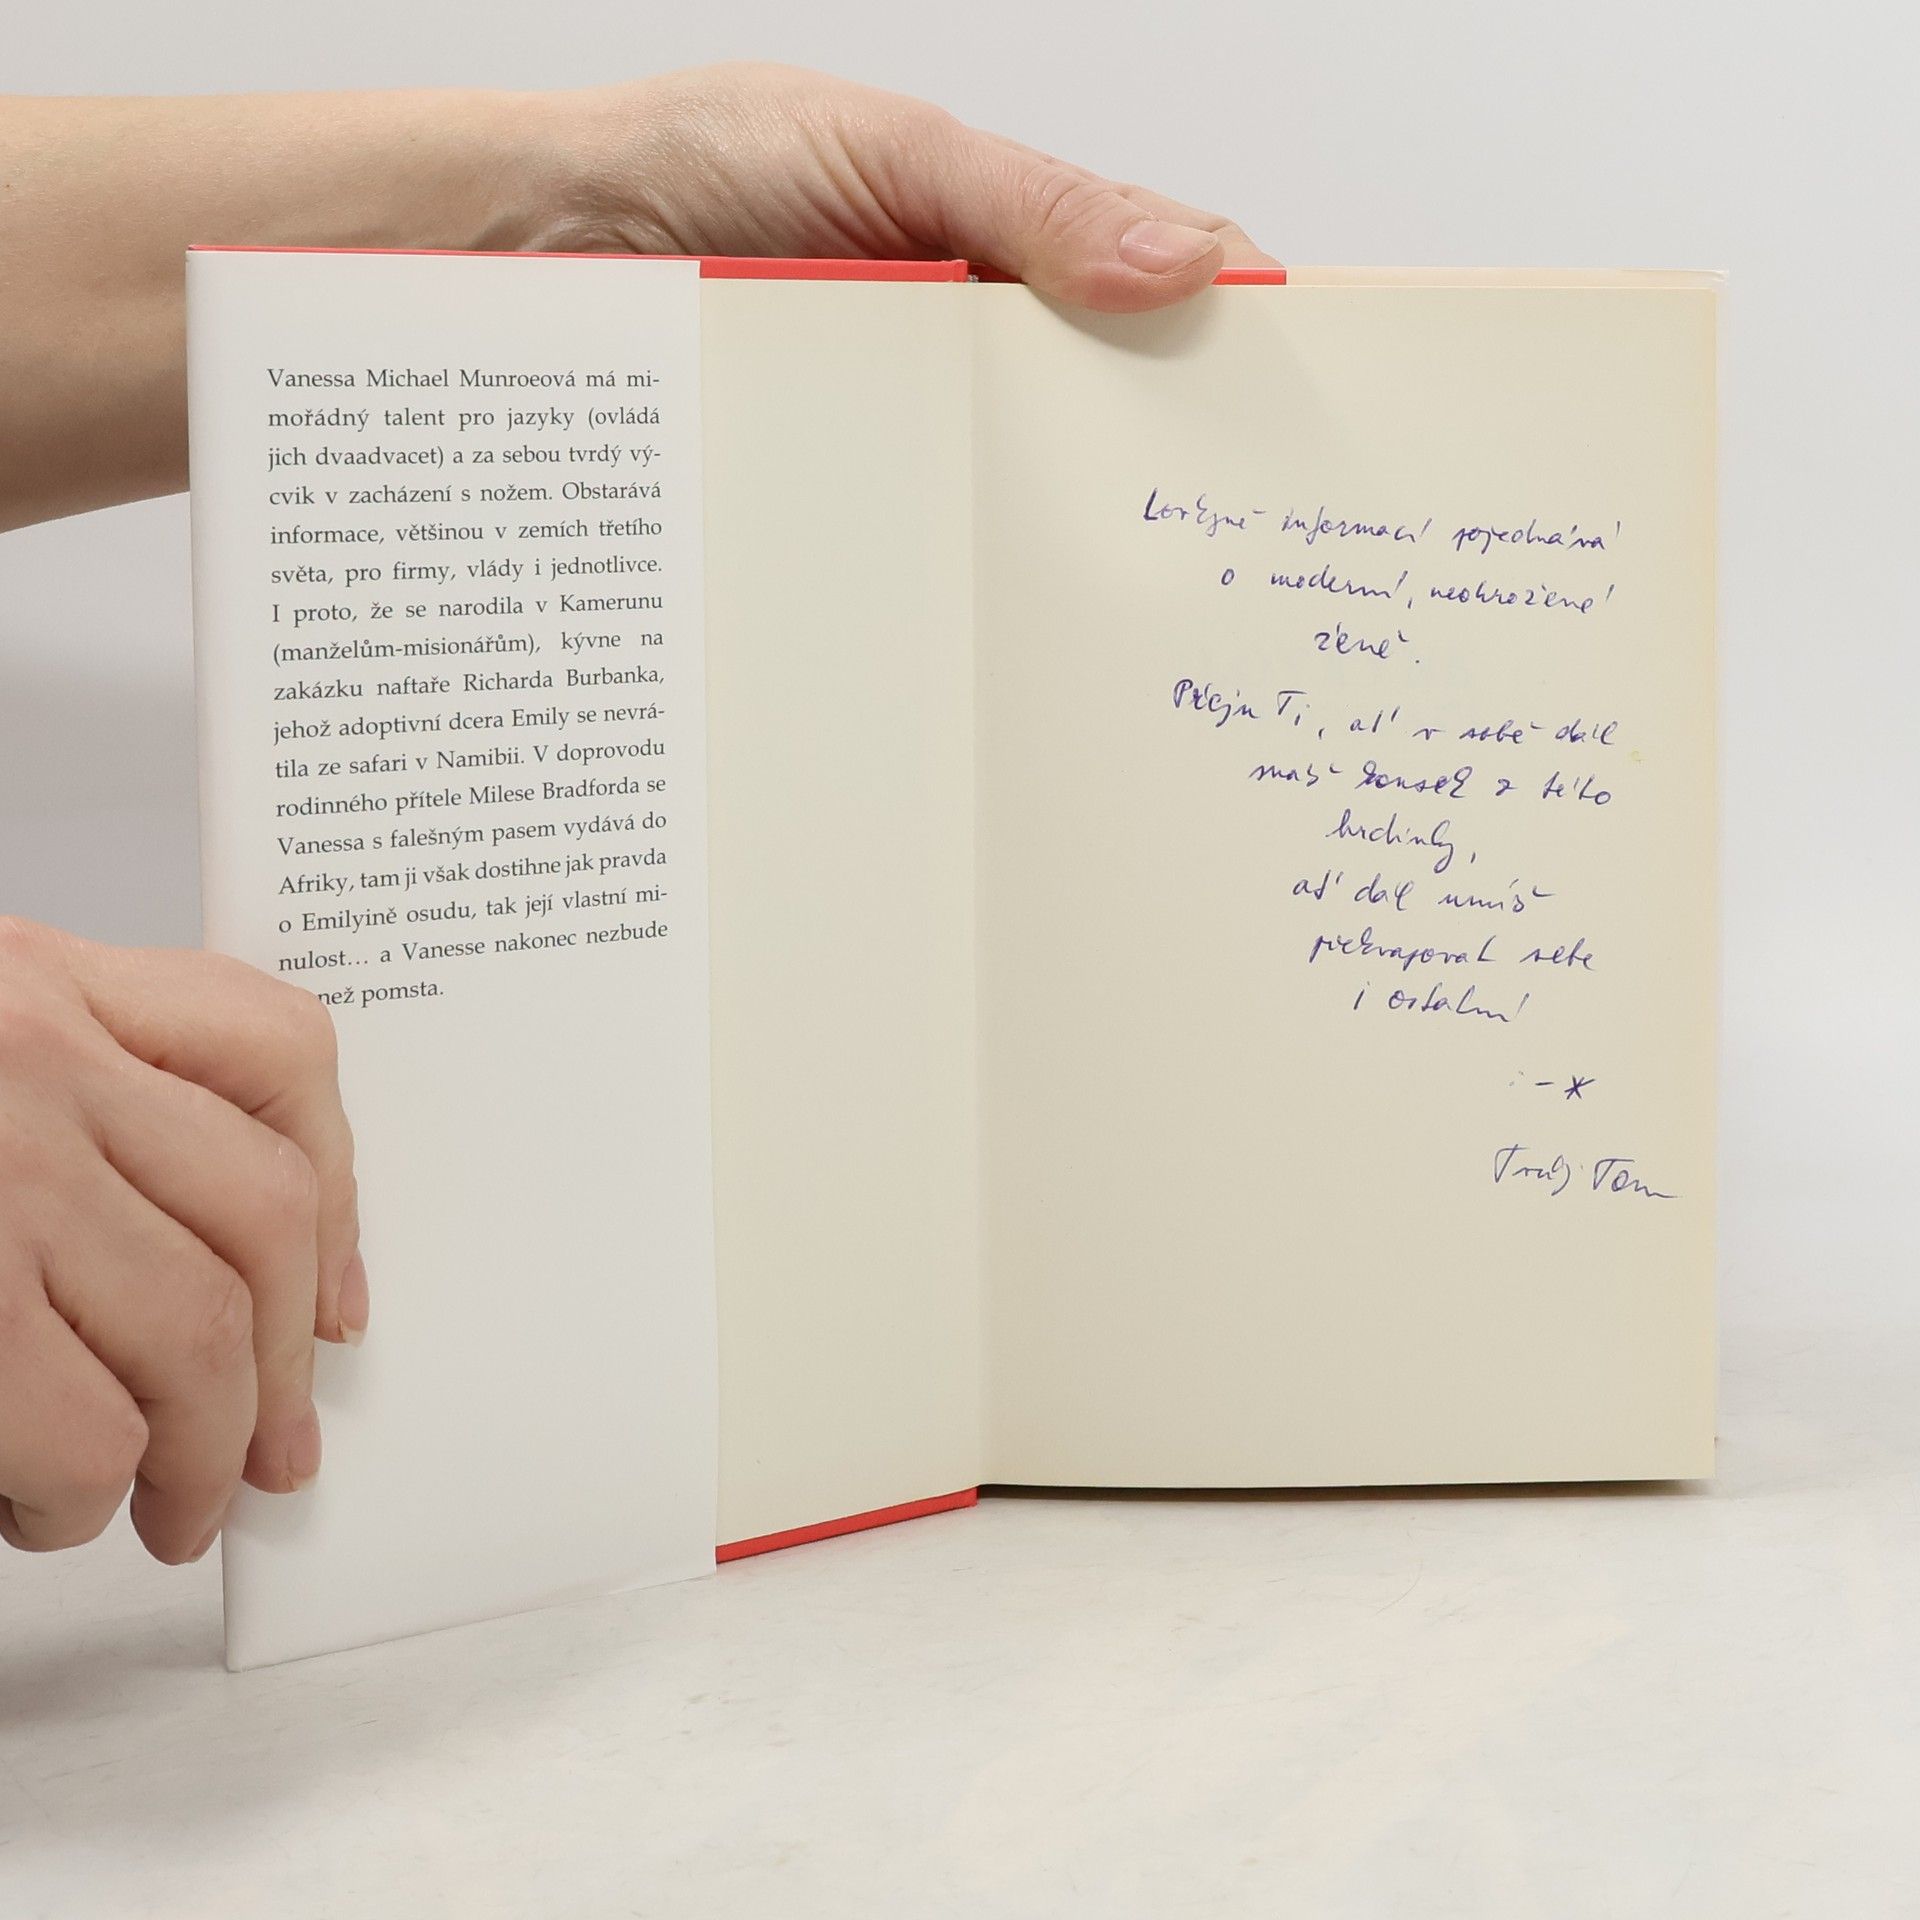 Vanessa Michael Munroeová má mi-
mořádný talent pro jazyky (ovládá
jich dvaadvacet) a za sebou tvrdý vý-
cvik v zacházení s nožem. Obstarává
informace, většinou v zemích třetího
světa, pro firmy, vlády i jednotlivce.
I proto, že se narodila v Kamerunu
(manželům-misionářům), kývne na
zakázku naftaře Richarda Burbanka,
jehož adoptivní dcera Emily se nevrá-
tila ze safari v Namibii. V doprovodu
rodinného přítele Milese Bradforda se
Vanessa s falešným pasem vydává do
Afriky, tam ji však dostihne jak pravda
o Emilyině osudu, tak její vlastní mi-
nulost... a Vanesse nakonec nezbude
než pomsta.
Lovkyně informací pojednává
o moderní, neohrožené
ženě.
Přeju Ti, ať v sobě dál
máš kousek z této
hrdinky,
ať dál umíš
překvapovat sebe
i ostatní
:-*
Tvůj Tom